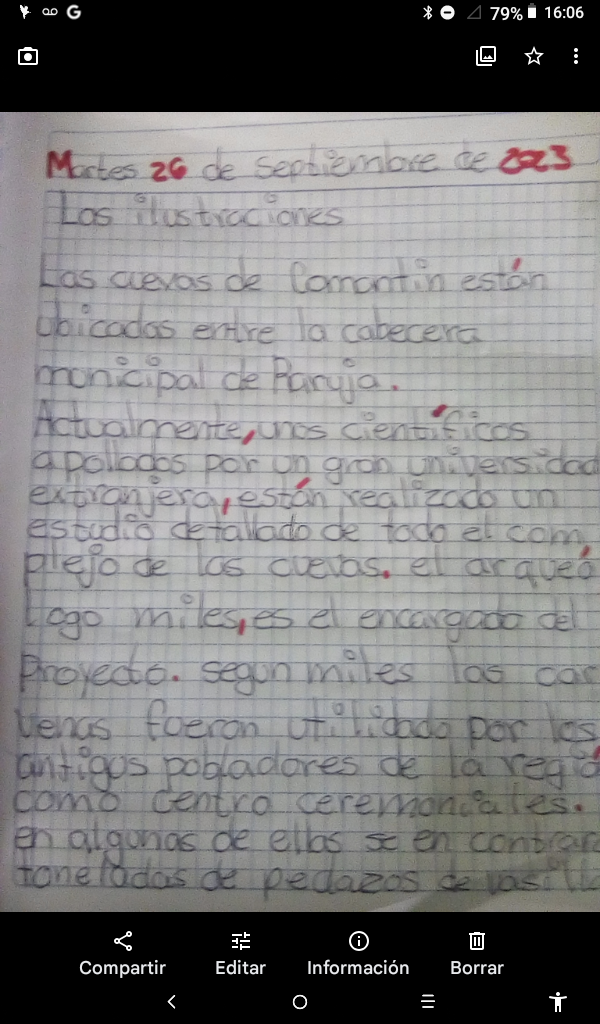 79% 16:06
Martes 26 de septiembre de 2023
Las ilustraciones
Las cuevas de Comontin están
ubicadas entre la cabecera
municipal de Paruja.
Actualmente, unos científicos
apollados por un gran universidad
extranjera, están realizado un
estudio detallado de todo el com
plejo de las cuevas. el arqueó
logo miles, es el encargado del
Proyecto. segun miles las car
venas fueron utilidada por los
antigos pobladores de la regió
como centro ceremoniales.
en algunas de ellas se en contrar
toneladas de pedazos de vasilla
Compartir Editar Información Borrar